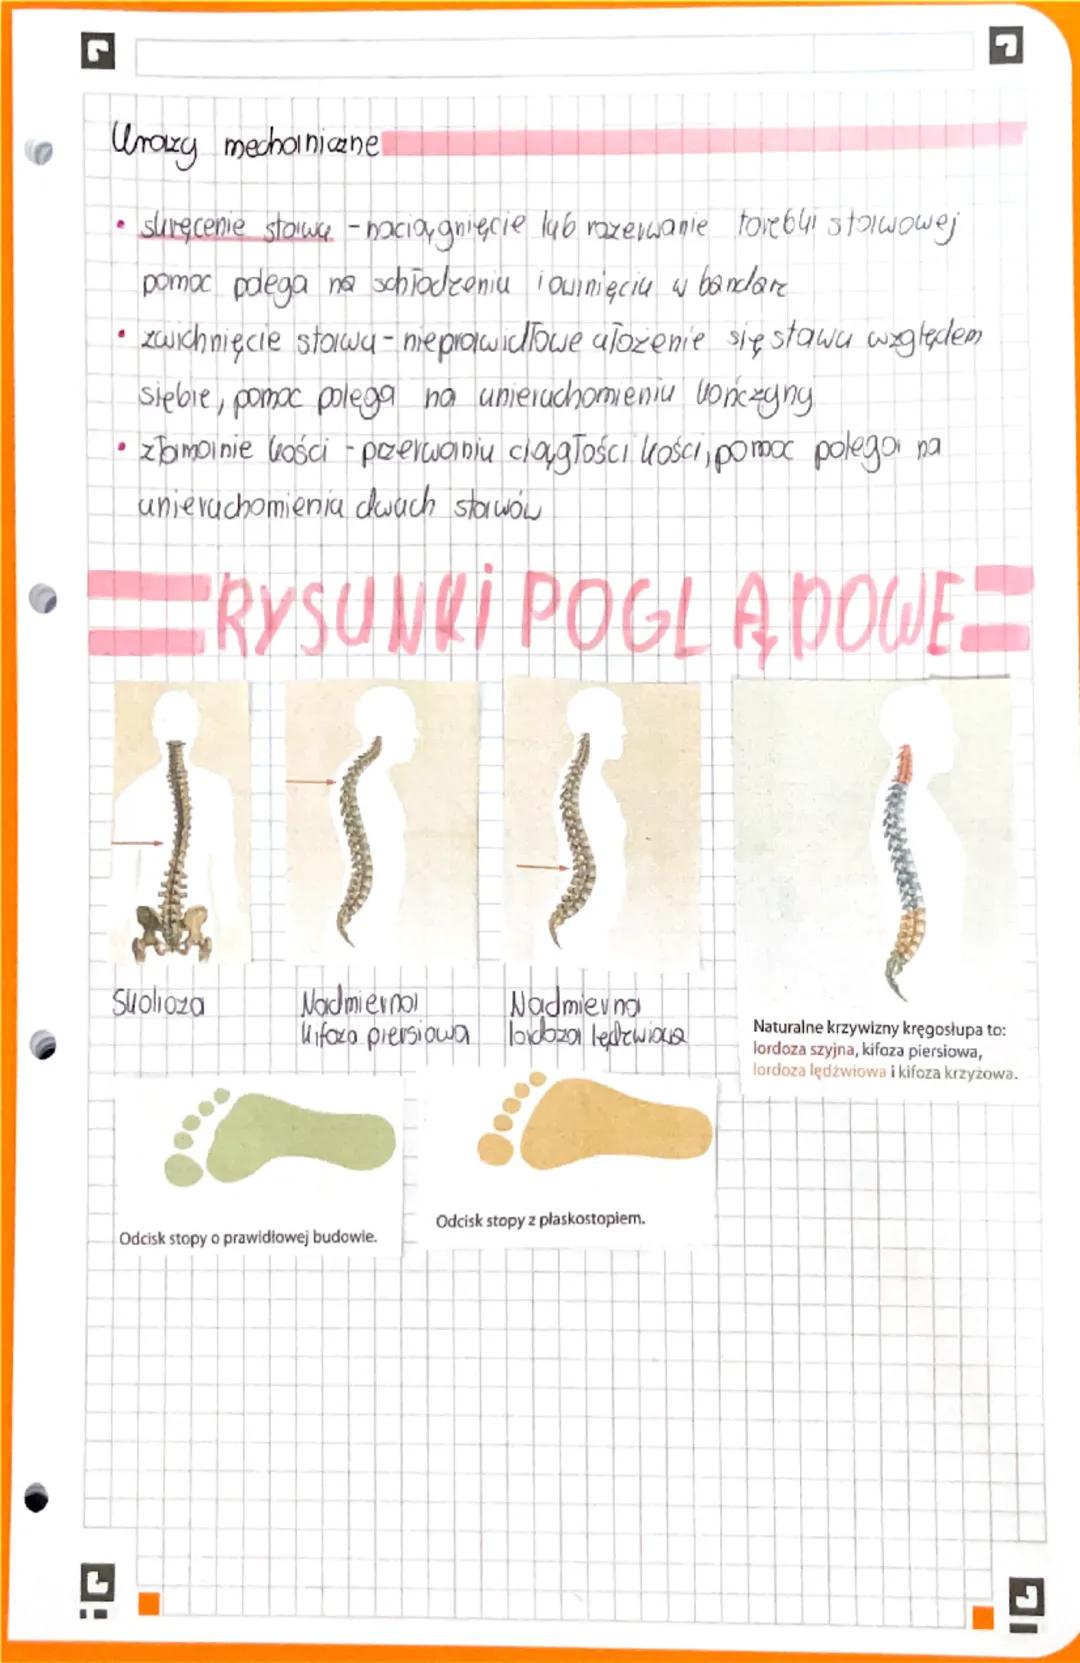 Urazy mechaniczne
• skręcenie stawu - naciągnięcie lub rozerwanie torebki stawowej
pomoc polega na schłodzeniu i owinięciu w bandaż
• zwichnięcie stawu - nieprawidłowe ułożenie się stawu względem
siebie, pomoc polega na unieruchomieniu kończyny
• złamanie kości - przerwaniu ciągłości kości, pomoc polega na
unieruchomienia dwóch stawów
RYSUNKI POGLĄDOWE
Skolioza
Nadmierna
kifoza piersiowa
Nadmierna
lordoza lędźwiowa
Naturalne krzywizny kręgosłupa to:
lordoza szyjna, kifoza piersiowa,
lordoza lędźwiowa i kifoza krzyżowa.
Odcisk stopy o prawidłowej budowie.
Odcisk stopy z płaskostopiem.